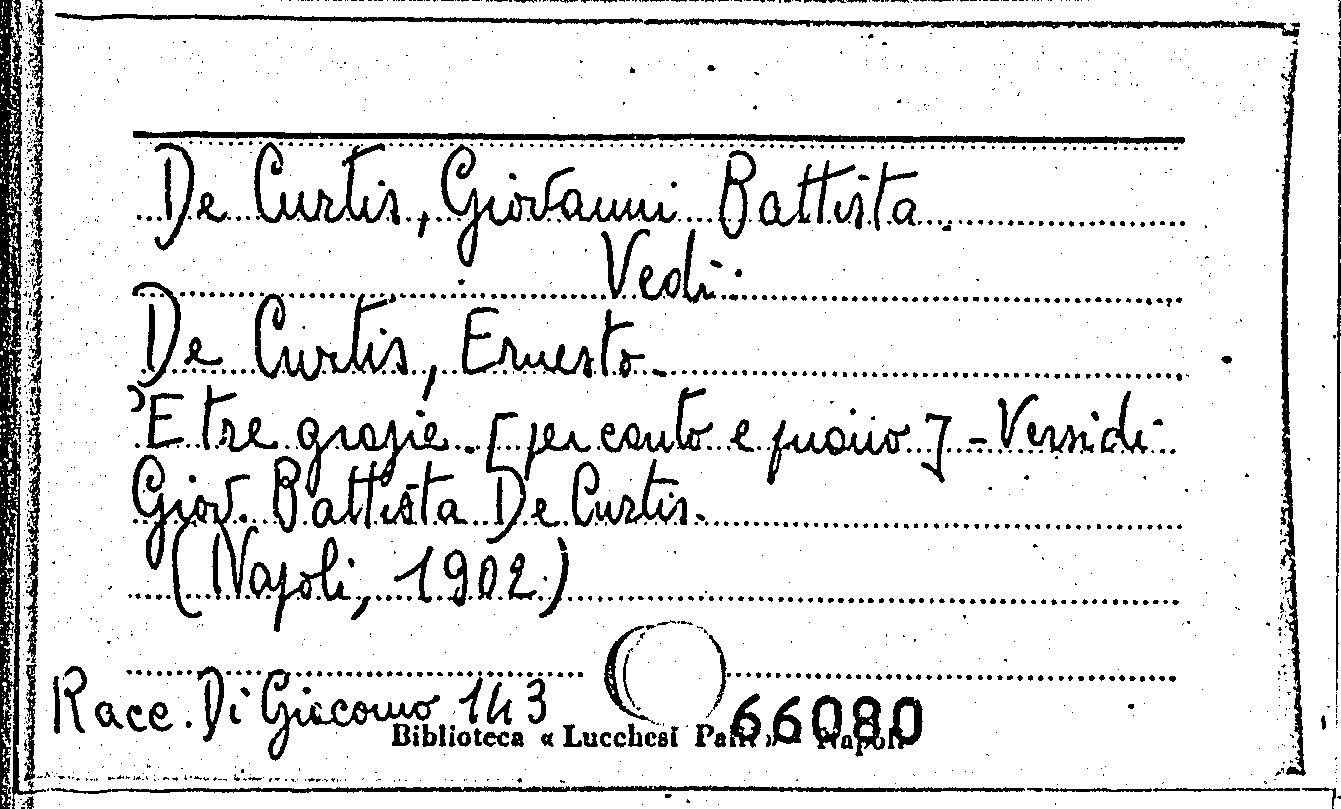 De Curtis, Giovanni Battista.
Vedi:
De Curtis, Ernesto.
'E tre grazie. [per canto e piano] - Versi di
Giov. Battista De Curtis.
(Napoli, 1902.)
Racc. Di Giacomo 143
66080
Biblioteca « Lucchesi Palli » - Napoli